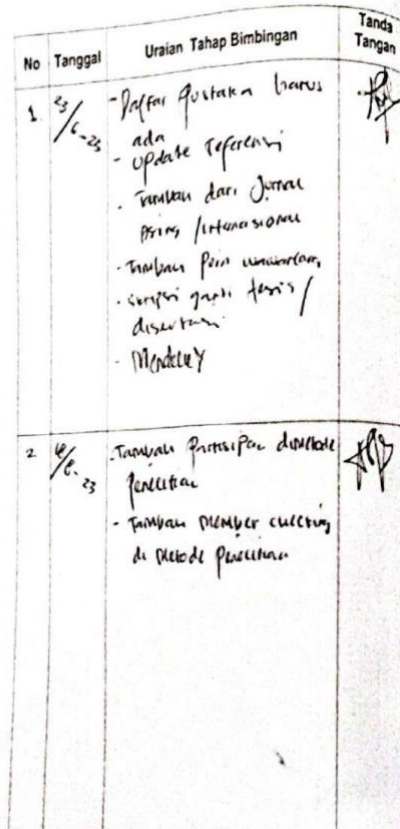 No Tanggal Uraian Tahap Bimbingan Tanda Tangan
1. 23/6-23
- Daftar Pustaka harus
ada
- update referensi
- Tambah dari Jurnal
Asing / internasional
- Tambah Poin wawancara
- skripsi ganti tesis /
disertasi
- Mendeley
2 /6-23
- Tambah Partisipan dimetode
Penelitian
- Tambah Member cheking
di metode Penelitian